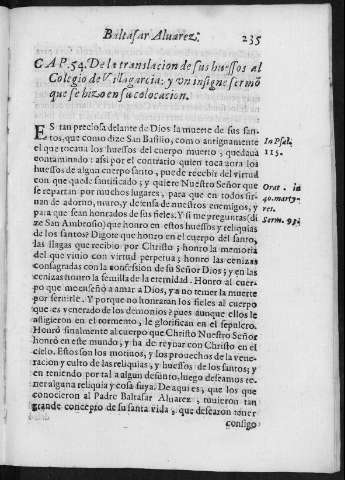 Baltasar Aluarez. 235
CAP. 54. De la translacion de sus huessos al
Colegio de Villagarcia; y vn insigne sermõ
que se hizo en su colocacion.
ES tan preciosa delante de Dios la muerte de sus san-
tos, que como dize San Basilio, como antiguamente
el que tocaua los huessos del cuerpo muerto, quedaua
contaminado: assi por el contrario quien toca aora los
huessos de algun cuerpo santo, puede recebir del virtud
con que quede santificado; y quiere Nuestro Señor que
se repartan por muchos lugares, para que en todos sir-
uan de adorno, muro, y defensa de nuestros enemigos, y
para que sean honrados de sus fieles. Y si me preguntas (di
ze San Ambrosio) que honro en estos huessos y reliquias
de los santos? Digote que honro en el cuerpo del santo,
las llagas que recibio por Christo; honro la memoria
del que viuio con virtud perpetua; honro las cenizas
consagradas con la confession de su Señor Dios; y en las
cenizas honro la semilla de la eternidad. Honro al cuer-
po que me enseñò a amar a Dios, y a no temer la muerte
por seruirle. Y porque no honraran los fieles al cuerpo
que es venerado de los demonios? pues aunque ellos le
afligieron en el tormento, le glorifican en el sepulcro.
Honro finalmente al cuerpo que Christo Nuestro Señor
honrò en este mundo, y ha de reynar con Christo en el
cielo. Estos son los motiuos, y los prouechos de la vene-
racion y culto de las reliquias, y huessos de los santos; y
en teniendo por tal a algun defunto, luego deseamos te-
ner alguna reliquia y cosa suya. De aqui es, que los que
conocieron al Padre Baltasar Aluarez, tuuieron tan
grande concepto de su santa vida, que desearon tener
consigo
In Psal.
115.
Orat. in
40. marty-
res.
Serm. 93.